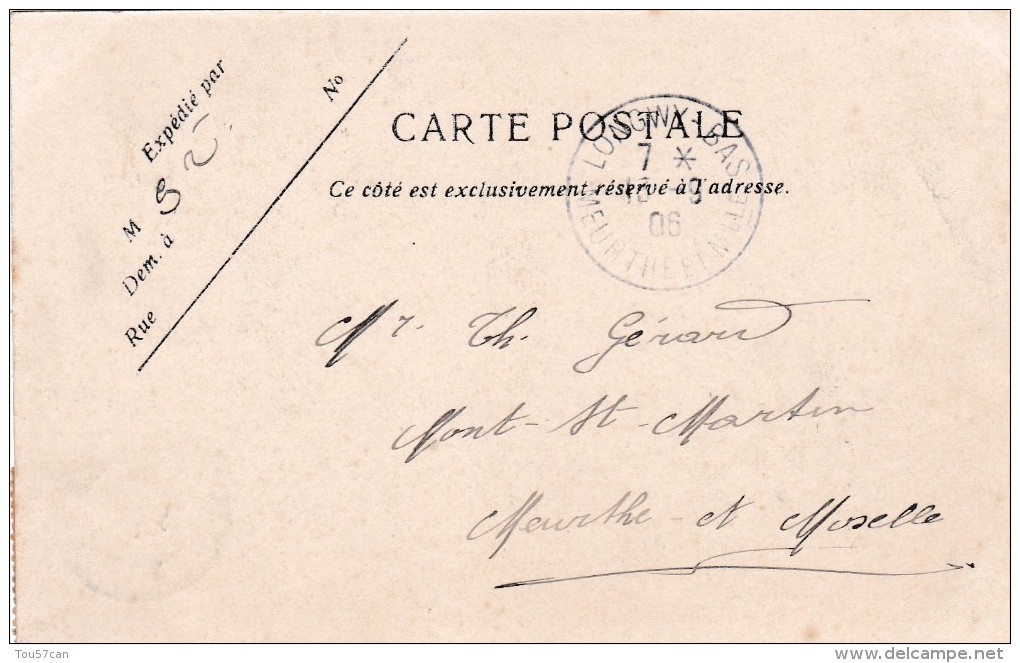 Expédié par
No
M
Dem. à
Rue
CARTE POSTALE
Ce côté est exclusivement réservé à l'adresse.
LONGWY-BAS
7 *
06
MEURTHE ET M LLE
Mr. Th. Gérard
Mont-St-Martin
Meurthe-et Moselle
Tou57can
www.delcampe.net